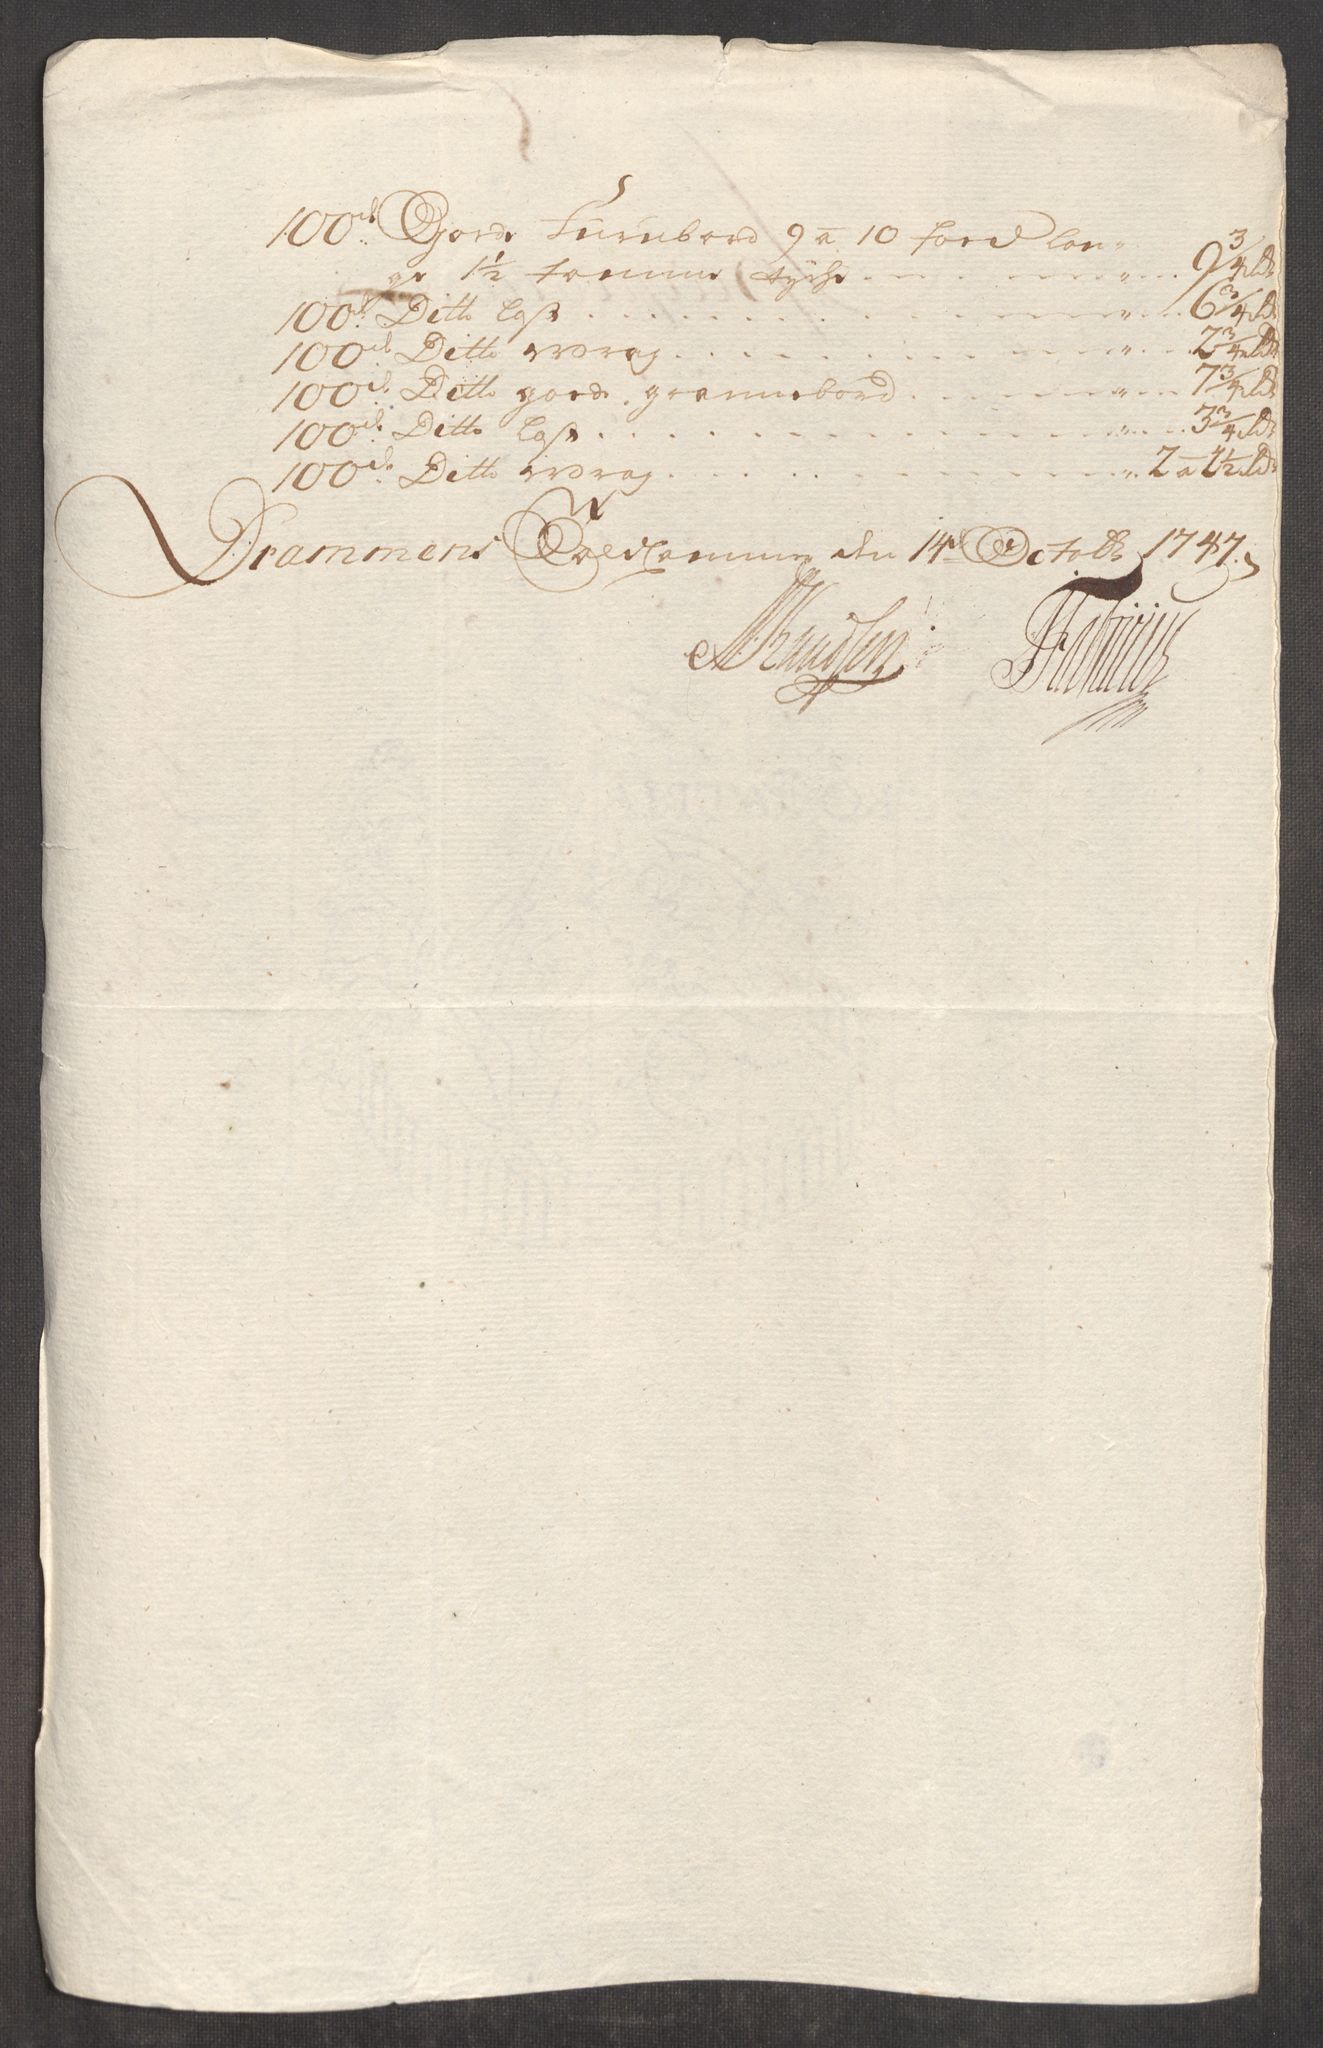 100de Goede Furubord 9 a 10 foed lan-
ge 1½ tomme tycke . . . . . 9¾ Rdr
100de Ditto lass . . . . . 6¾ Rdr
100de Ditto wrag . . . . . 2¾ Rdr
100de Ditto goede grannebord . . . . . 7¾ Rdr
100de Ditto lass . . . . . 3¾ Rdr
100de Ditto wrag . . . . . 2 a 2½ Rdr
Drammens Toldkammer den 14de Octobr 1747.
Knudsen Fabritius